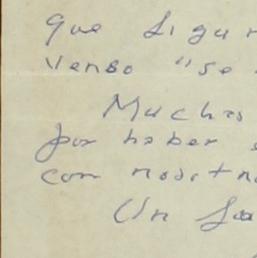 que sigu
venso "se
Muchas
por haber
con nosotr
Un